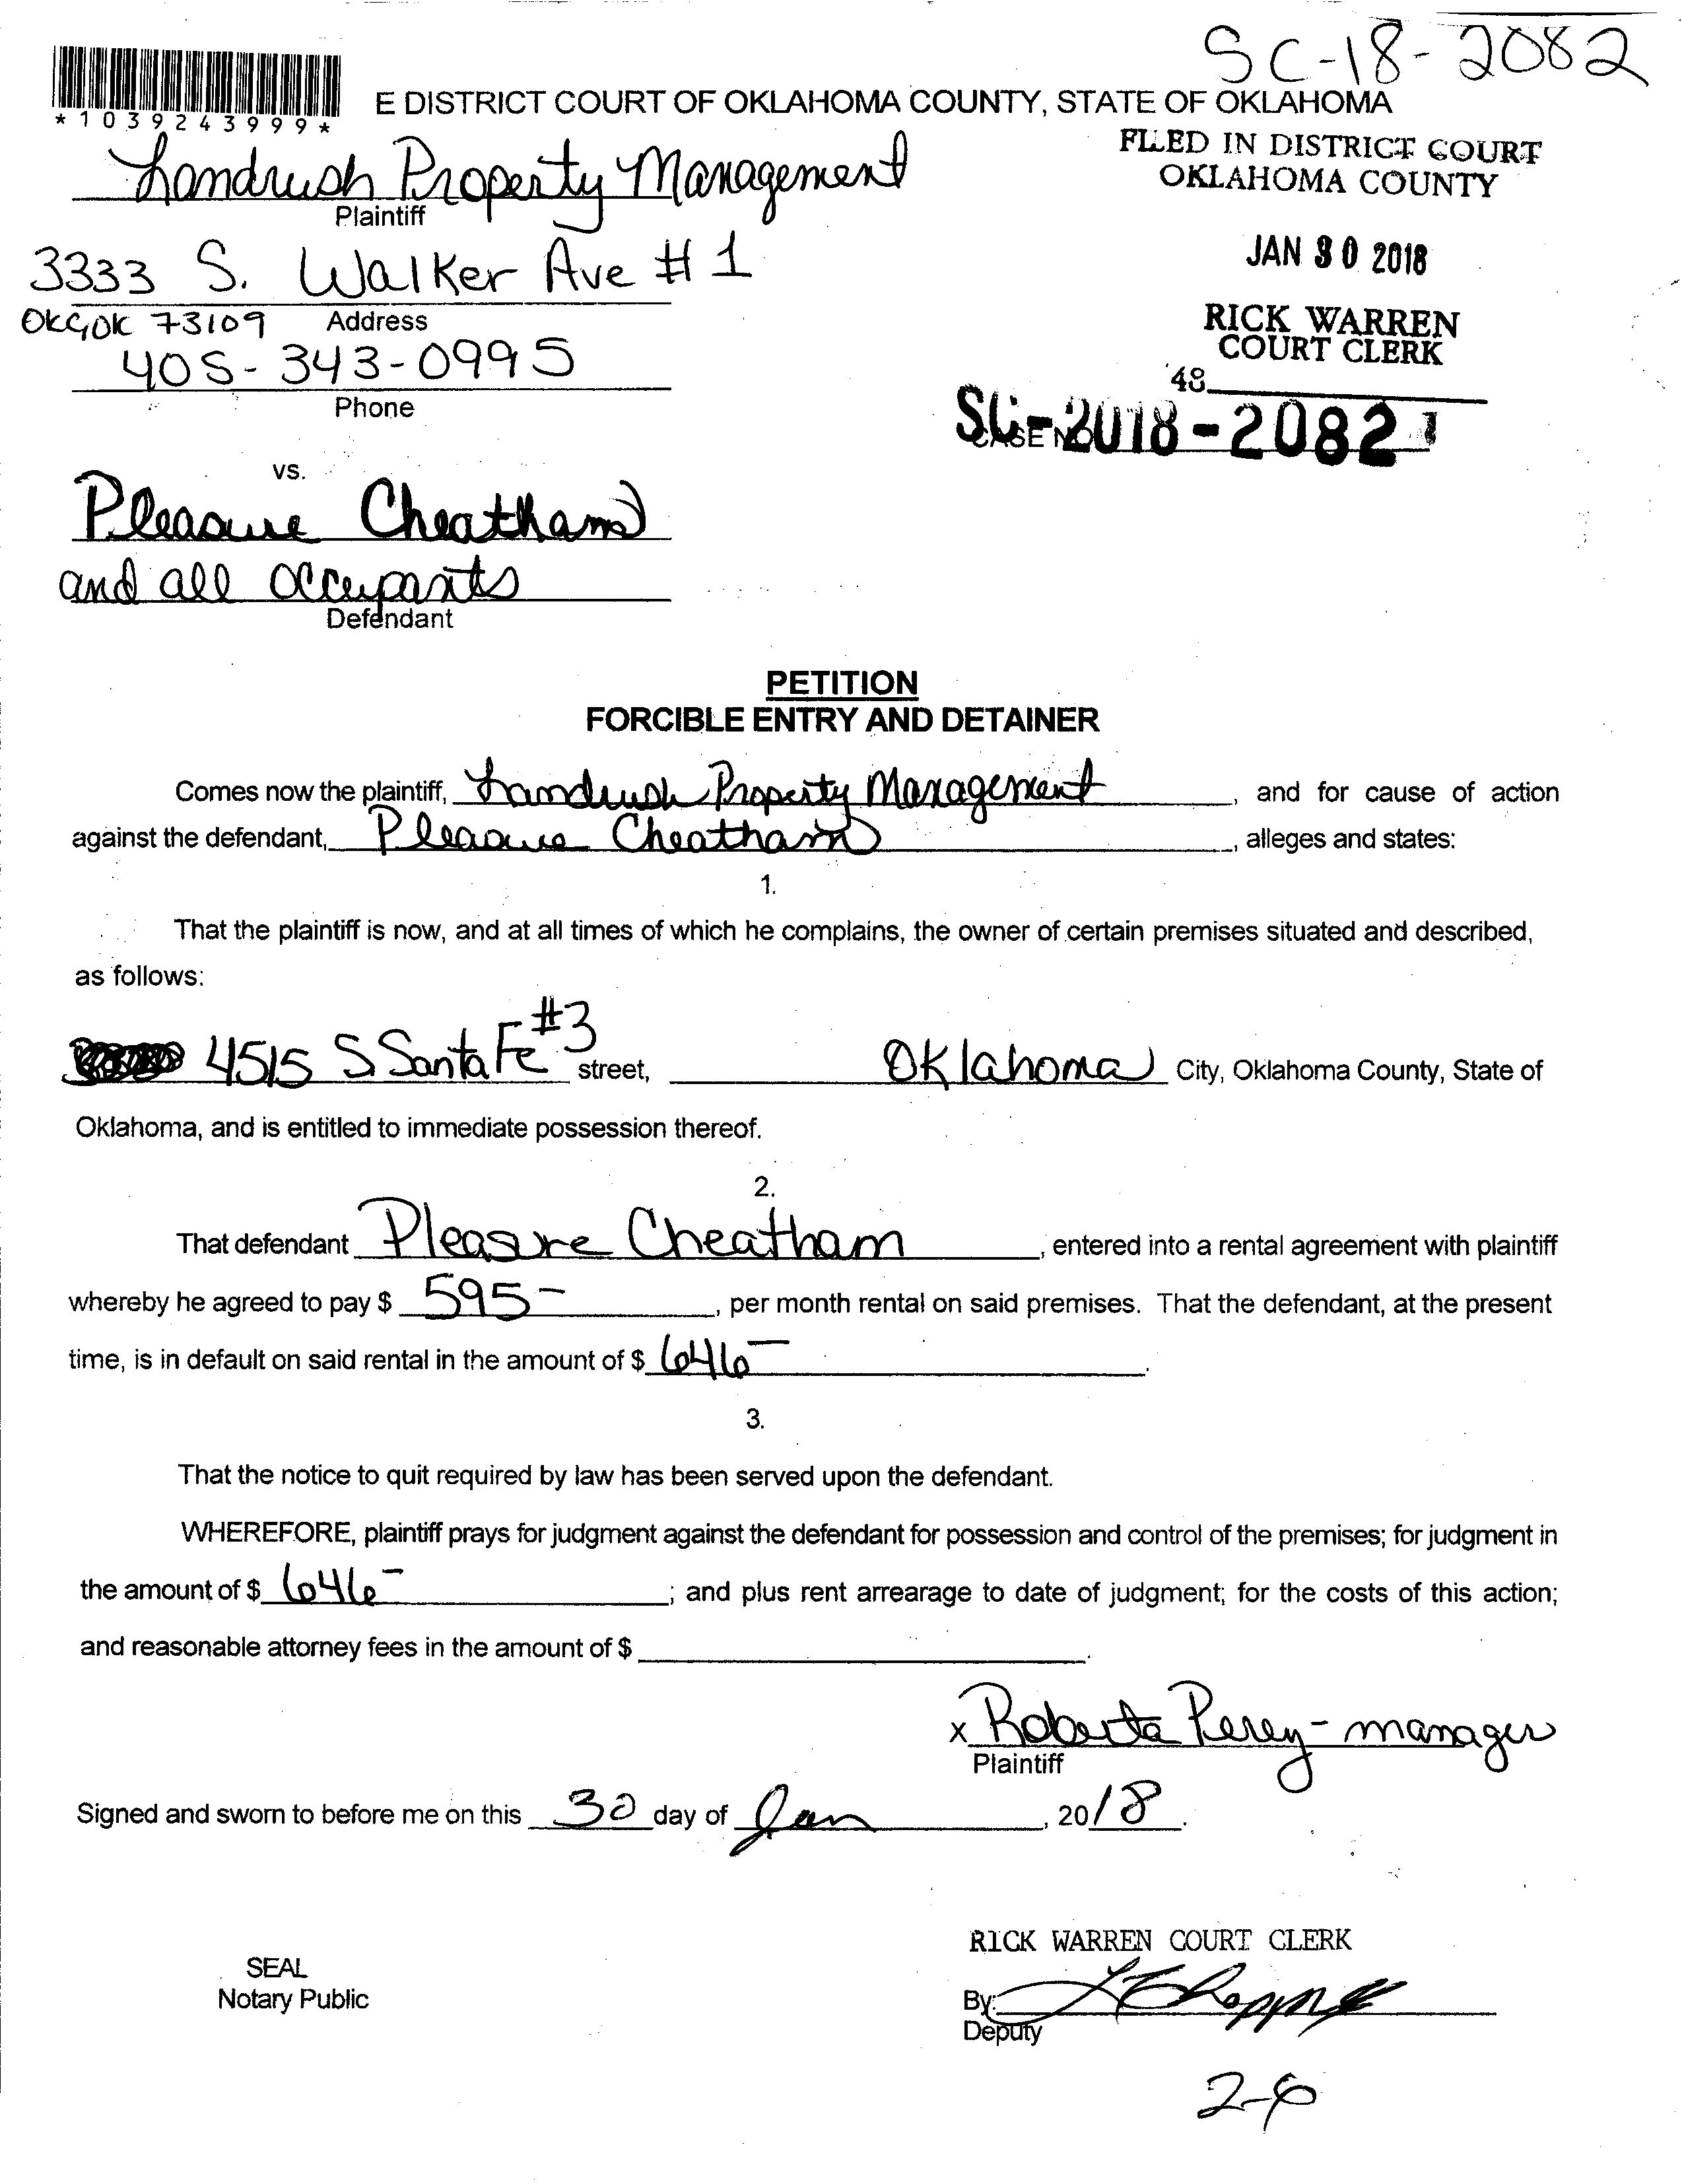 SC-18-2082
*1039243999*
E DISTRICT COURT OF OKLAHOMA COUNTY, STATE OF OKLAHOMA
FILED IN DISTRICT COURT
OKLAHOMA COUNTY
Landrush Property Management
Plaintiff
JAN 30 2018
3333 S. Walker Ave # 1
OKC, OK 73109 Address
RICK WARREN
COURT CLERK
405-343-0995
Phone
48
SC-2018-2082
CASE NO.
vs.
Pleasure Cheatham
and all occupants
Defendant
PETITION
FORCIBLE ENTRY AND DETAINER
Comes now the plaintiff, Landrush Property Management, and for cause of action
against the defendant, Pleasure Cheatham, alleges and states:
1.
That the plaintiff is now, and at all times of which he complains, the owner of certain premises situated and described,
as follows:
4515 S Santa Fe #3 street, Oklahoma City, Oklahoma County, State of
Oklahoma, and is entitled to immediate possession thereof.
2.
That defendant Pleasure Cheatham, entered into a rental agreement with plaintiff
whereby he agreed to pay $ 595-, per month rental on said premises. That the defendant, at the present
time, is in default on said rental in the amount of $ 646-.
3.
That the notice to quit required by law has been served upon the defendant.
WHEREFORE, plaintiff prays for judgment against the defendant for possession and control of the premises; for judgment in
the amount of $ 646-; and plus rent arrearage to date of judgment; for the costs of this action;
and reasonable attorney fees in the amount of $ .
x Roberta Perey - manager
Plaintiff
Signed and sworn to before me on this 30 day of Jan, 2018.
RICK WARREN COURT CLERK
SEAL
Notary Public
By:
Deputy